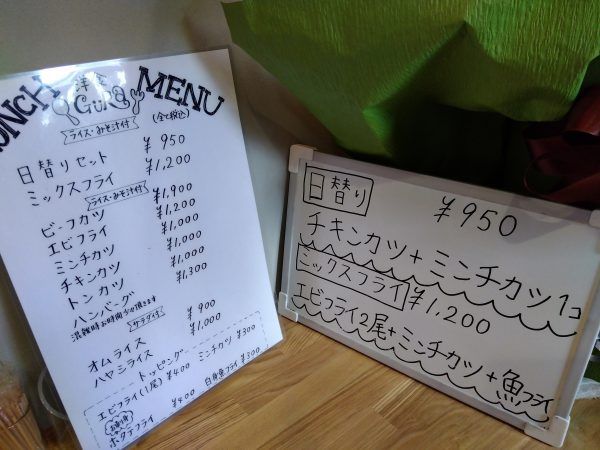 LUNCH 洋食 GURA MENU
ライス・みそ汁付 (全て税込)
日替りセット ¥950
ミックスフライ ¥1,200
ライス・みそ汁付
ビーフカツ ¥1,900
エビフライ ¥1,200
ミンチカツ ¥1,000
チキンカツ ¥1,000
トンカツ ¥1,000
ハンバーグ ¥1,300
混雑時お時間少々頂きます
サラダ付
オムライス ¥900
ハヤシライス ¥1,000
トッピング
エビフライ(1尾) ¥400 ミンチカツ ¥300
ホタテフライ ¥400 白身魚フライ ¥300
日替り ¥950
チキンカツ+ミンチカツ1コ
ミックスフライ ¥1,200
エビフライ2尾+ミンチカツ+魚フライ